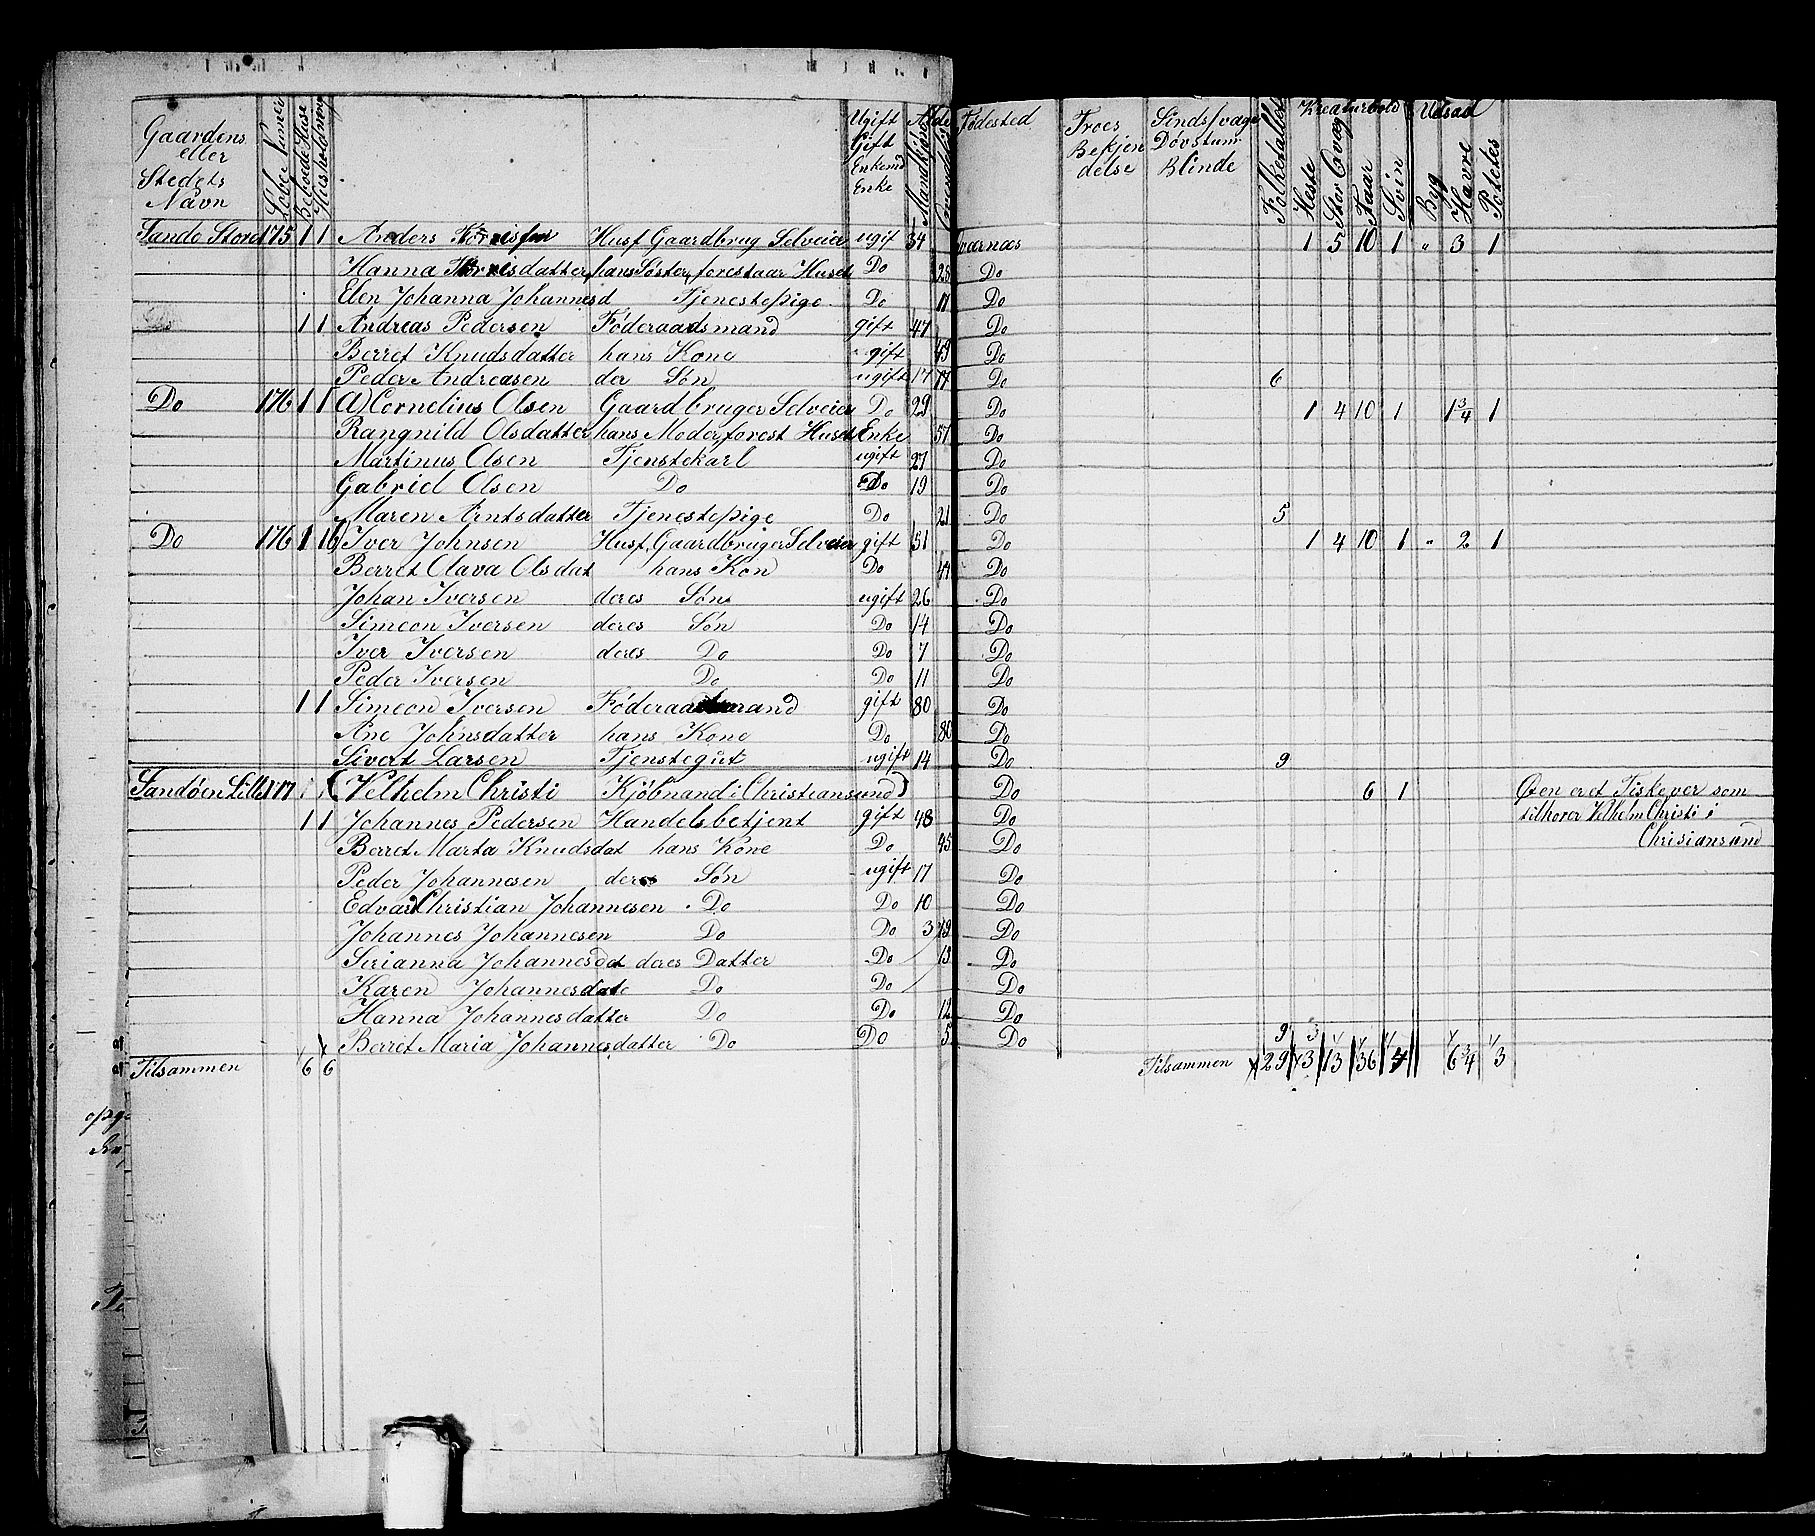 Gaardens eller Stedets Navn | Løbe Numer | Beboede Huse | Huusholdninger | Ugift Gift Enkemd Enke | Alder Mandkjøn Qvindekjøn | Fødested | Troes Bekjendelse | Sindssvage Døvstum Blinde | Folketallet | Kreaturhold Heste Stor Qvæg Faar Svin | Udsæd Byg Havre Potetes
Sandø Store 175 1 1 Anders Husf Gaardbrug Selveier ugif 34 1 5 10 1 " 3 1
Hanna hans Søster, forestaar Huset Do 25 Do
Elen Johanna Johannesd Tjenestepige Do 17 Do
1 1 Andreas Pedersen Føderaadsmand gift 47 Do
Berret Knudsdatter hans Kone gift 49 Do
Peder Andreasen der Søn ugift 17 Do 6
Do 176 1 1 a) Cornelius Olsen Gaardbruger Selveier Do 29 Do 1 4 10 1 1 3/4 1
Rangnild Olsdatter hans Moder, forest Huset Enke 57 Do
Martinus Olsen Tjenstekarl ugift 27 Do
Gabriel Olsen Do Do 19 Do
Maren Arntsdatter Tjenestepige Do 21 Do 5
Do 176 1 1 b) Iver Johnsen Husf, Gaardbruger Selveier gift 51 Do 1 4 10 1 " 2 1
Berret Olava Olsdat hans Kon Do 44 Do
Johan Iversen deres Søn ugift 26 Do
Simeon Iversen deres Søn Do 14 Do
Iver Iversen deres Do Do 7 Do
Peder Iversen Do Do 11 Do
1 1 Simeon Iversen Føderaadsmand gift 80 Do
Ane Johnsdatter hans Kone Do 80 Do
Sivert Larsen Tjenstegut ugift 14 Do 9
Sandøen Lille 177 (Velhelm Christi Kjøbmand i Christiansund) Do 6 1 Øen er et Fiskever som
1 1 Johannes Pedersen Handelsbetjent gift 48 Do tilhører Velhelm Christi i
Berret Marta Knudsdat hans Kone Do 45 Do Chrisiansund
Peder Johannesen deres Søn ugift 17 Do
Edvard Christian Johannesen Do Do 10 Do
Johannes Johannesen Do Do 3 Do
Sirianna Johannesdat deres Datter Do Do
Karen Johannesdat Do Do Do
Hanna Johannesdatter Do Do 12 Do
Berret Maria Johannesdatter Do Do 5 Do 9 3
Tilsammen 6 6 Tilsammen 29 3 13 36 4 6 3/4 3